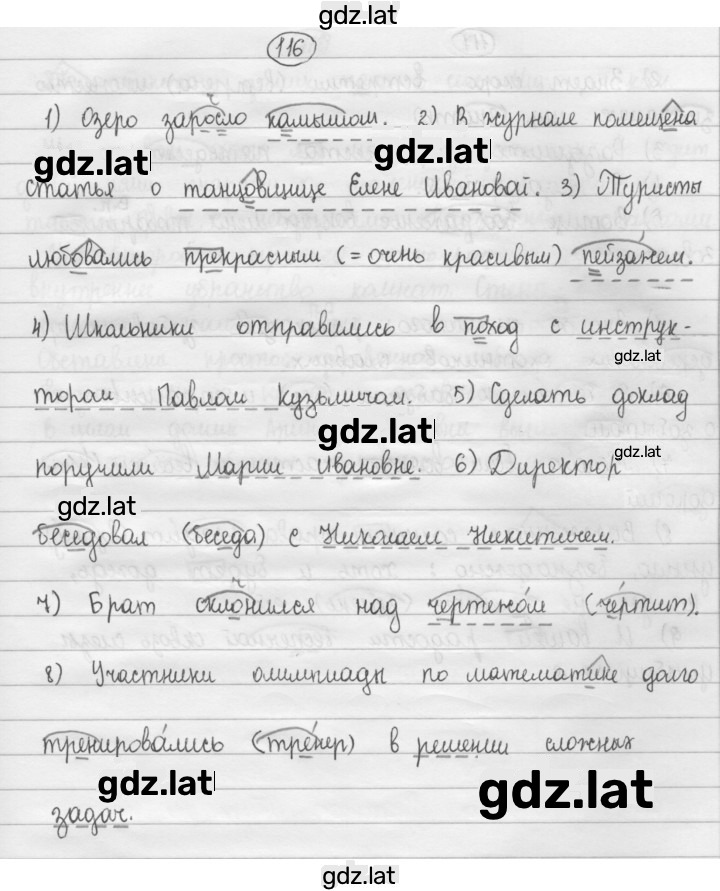 gdz.lat
116
1) Озеро заросло камышом. 2) В журнале помещена
gdz.lat
gdz.lat
статья о танцовщице Елене Ивановой. 3) Туристы
любовались прекрасным (= очень красивым) пейзажем.
4) Школьники отправились в поход с инструк-
gdz.lat
тором Павлом Кузьмичом. 5) Сделать доклад
gdz.lat
поручили Марии Ивановне. 6) Директор
gdz.lat
gdz.lat
беседовал (беседа) с Николаем Никитичем.
7) Брат склонился над чертежом (чертит).
8) Участники олимпиады по математике долго
тренировались (тренер) в решении сложных
gdz.lat
gdz.lat
задач.
gdz.lat